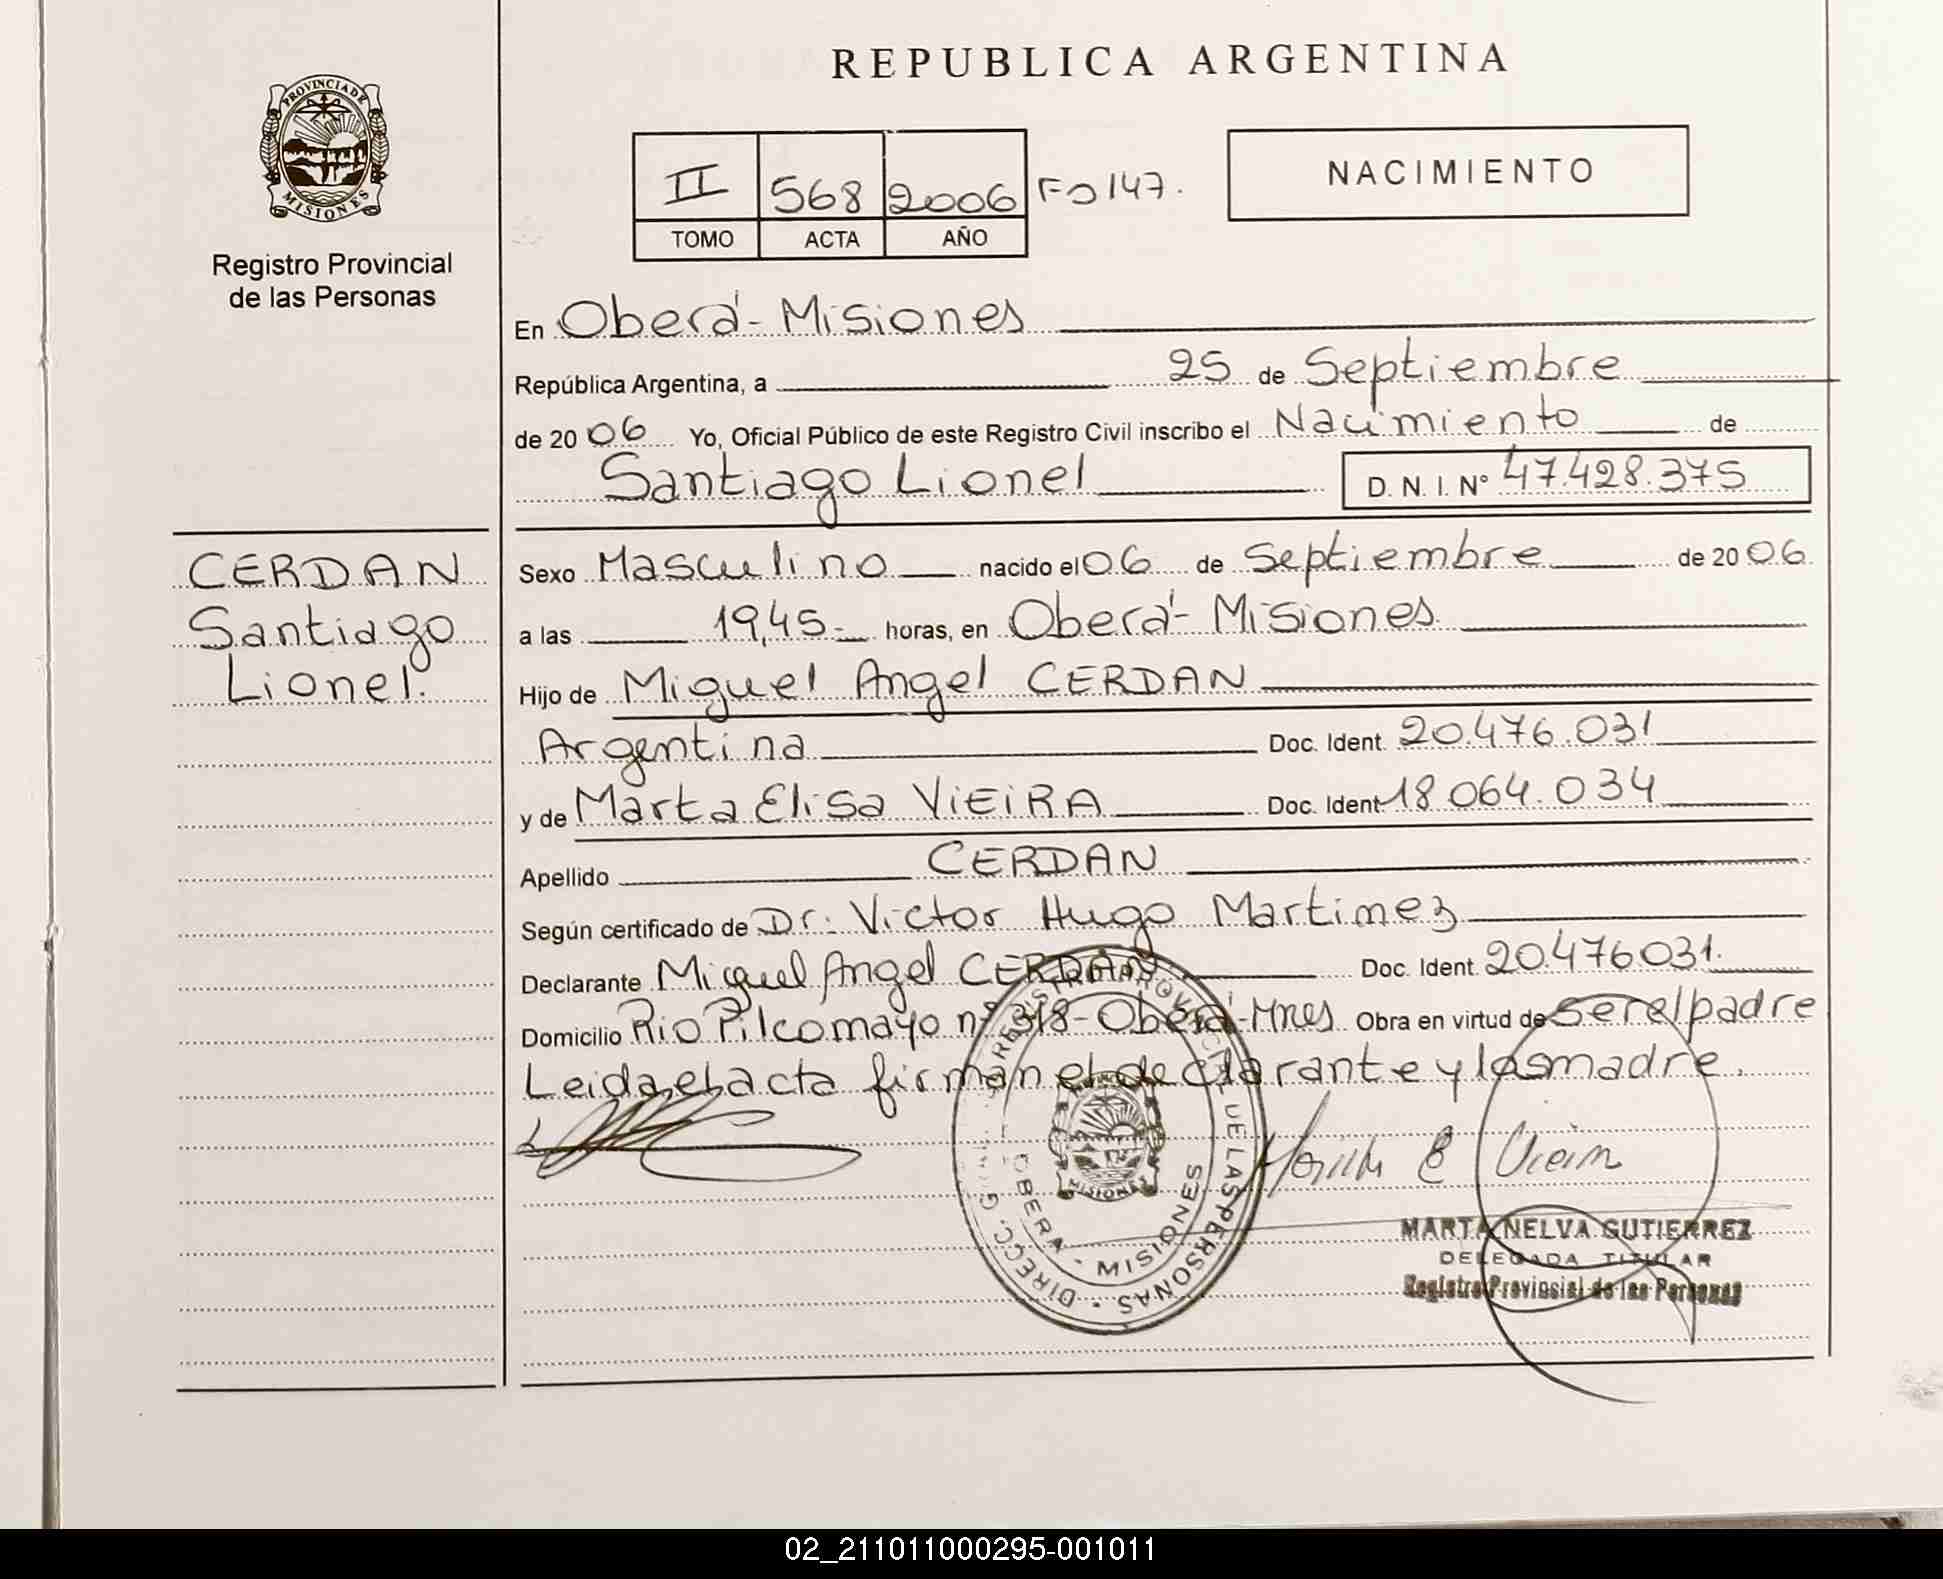 REPUBLICA ARGENTINA
PROVINCIA DE
MISIONES
Registro Provincial
de las Personas
II 568 2006 Fº 147.
TOMO ACTA AÑO
NACIMIENTO
En Oberá - Misiones
República Argentina, a 25 de Septiembre
de 2006 Yo, Oficial Público de este Registro Civil inscribo el Nacimiento de
Santiago Lionel D. N. I. N° 47.428.375
CERDAN
Santiago
Lionel.
Sexo Masculino nacido el 06 de Septiembre de 2006
a las 19,45- horas, en Oberá - Misiones
Hijo de Miguel Angel CERDAN
Argentina Doc. Ident. 20.476.031
y de Marta Elisa VIEIRA Doc. Ident 18.064.034
Apellido CERDAN
Según certificado de Dr. Victor Hugo Martinez
Declarante Miguel Angel CERDAN Doc. Ident. 20.476.031.
Domicilio Rio Pilcomayo nº 318 - Oberá - Mnes Obra en virtud de ser el padre
Leida el acta firman el declarante y la madre.
Marta E Vieira
DIRECC. GRAL. REGISTRO PROVINCIAL DE LAS PERSONAS
MISIONES
OBERA - MISIONES
MARTA NELVA GUTIERREZ
DELEGADA TITULAR
Registro Provincial de las Personas
02_211011000295-001011